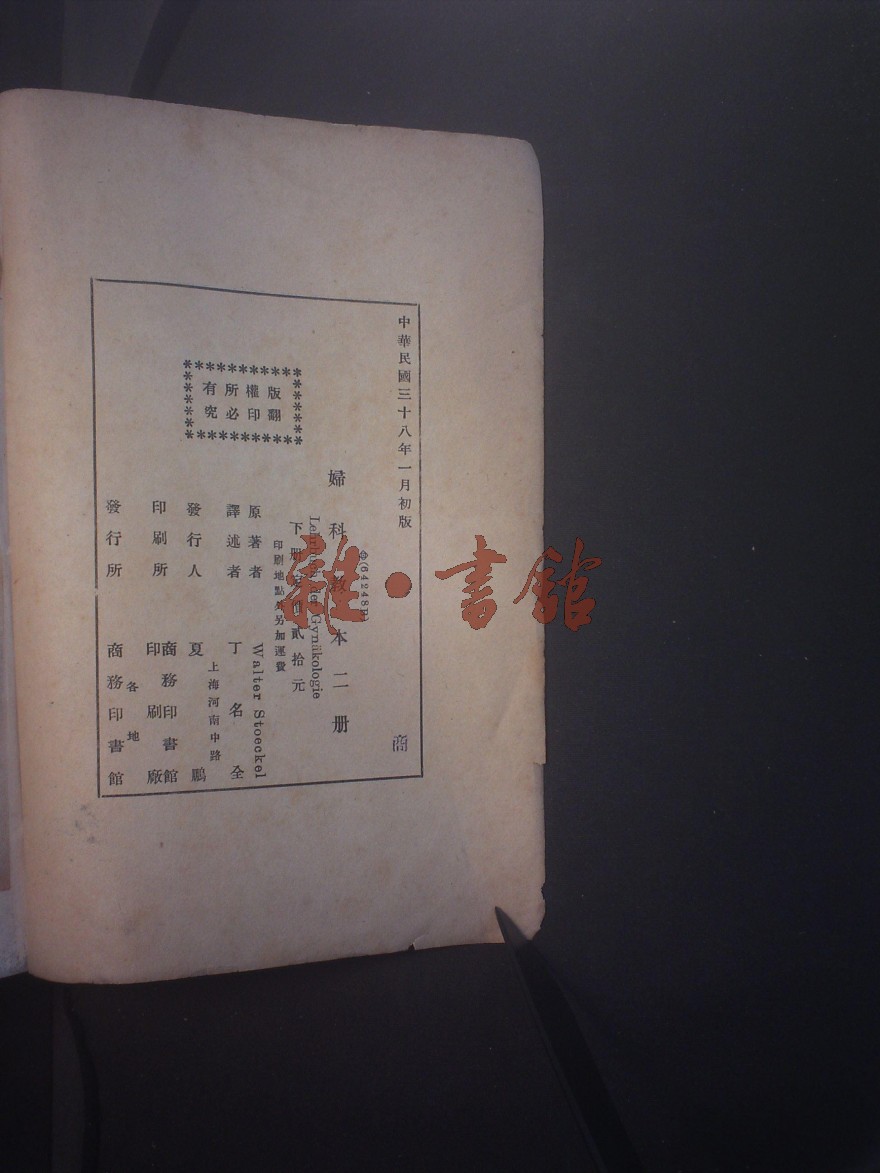 中華民國三十八年一月初版
(64248B)
婦科教本二册
Lehrbuch der Gynäkologie
下册定價貳拾元
印刷地點外另加運費
版權所有
翻印必究
原著者 Walter Stoeckel
譯述者 丁名全
上海河南中路
發行人 夏鵬
印刷所 商務印書館印刷廠
各地
發行所 商務印書館
商
雜·書館